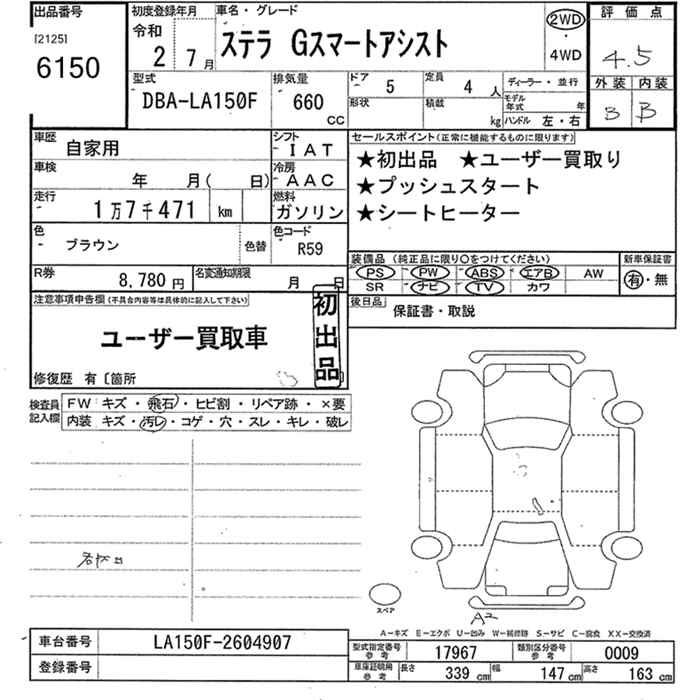 出品番号
[2125]
6150
初度登録年月
令和
2 年 7月
車名・グレード
ステラ Gスマートアシスト
2WD
・
4WD
評価点
4.5
外装 内装
B B
型式
DBA-LA150F
排気量
660
CC
ドア 5
形状
定員 4 人
積載 kg
ディーラー・並行
モデル年式 年
ハンドル 左・右
車歴 自家用
シフト IAT
車検 年 月( 日)
冷房 AAC
走行 1万7千471 km
燃料 ガソリン
色 ブラウン 色替
色コード R59
R券 8,780 円
名変通知期限 月 日
セールスポイント(正常に機能するものに限ります)
★初出品 ★ユーザー買取り
★プッシュスタート
★シートヒーター
装備品 (純正品に限り○をつけてください)
PS PW ABS エアB AW
SR ナビ TV カワ
新車保証書
有・無
後日品
保証書・取説
注意事項申告欄(不具合内容等は具体的に記入して下さい)
ユーザー買取車
初出品
修復歴 有〔箇所 〕
検査員記入欄
FW キズ・飛石・ヒビ割・リペア跡・×要
内装 キズ・汚レ・コゲ・穴・スレ・キレ・破レ
スペア
A2
A−キズ E−エクボ U−凹み W−補修跡 S−サビ C−腐食 XX−交換済
車台番号 LA150F-2604907
登録番号
型式指定番号 参考 17967
類別区分番号 参考 0009
車庫証明用 参考 長さ 339 cm 幅 147 cm 高さ 163 cm